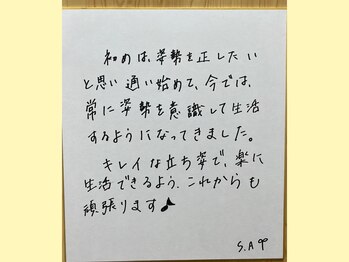 初めは、姿勢を正したい
と思い通い始めて、今では、
常に姿勢を意識して生活
するようになってきました。
キレイな立ち姿で、楽に
生活できるよう、これからも
頑張ります♪
S.A